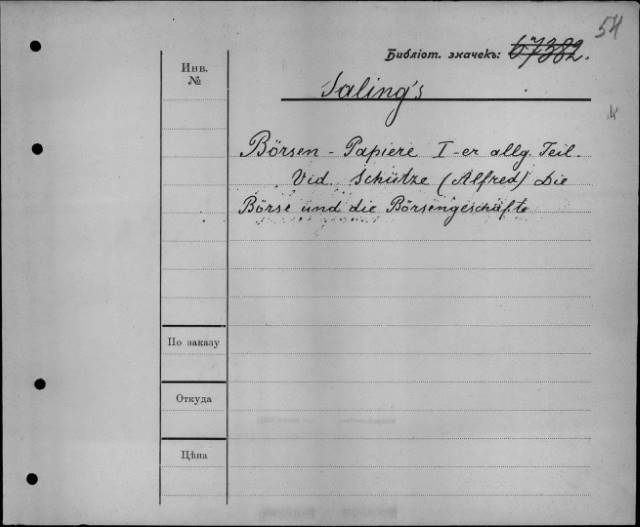 54
Библіот. значекъ: 67382.
Инв.
№
Saling's
Börsen - Papiere I-er allg. Teil.
Vid. Schütze (Alfred) Die
Börse und die Börsengeschäfte
По заказу
Откуда
Цѣна